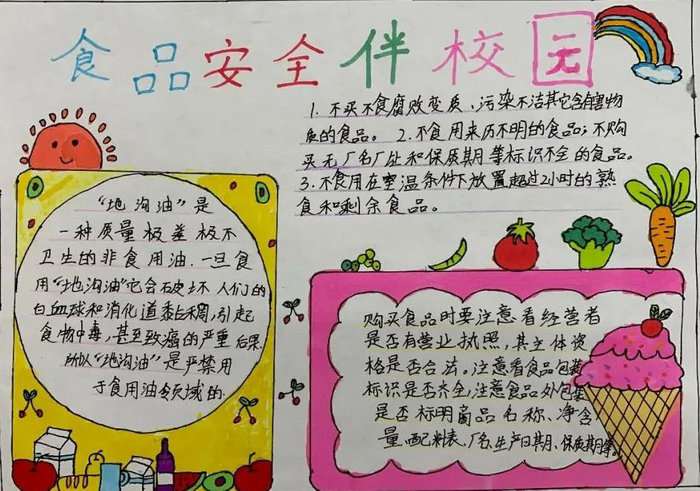 食品安全伴校园
1. 不买不食腐败变质、污染不洁其它含有害物
质的食品。 2. 不食用来历不明的食品；不购
买无厂名厂址和保质期等标识不全的食品。
3. 不食用在室温条件下放置超过2小时的熟
食和剩余食品。
“地沟油”是
一种质量极差极不
卫生的非食用油．一旦食
用“地沟油”它会破坏人们的
白血球和消化道黏稠，引起
食物中毒，甚至致癌的严重后果
所以“地沟油”是严禁用
于食用油领域的．
购买食品时要注意看经营者
是否有营业执照，其主体资
格是否合法，注意看食品包装
标识是否齐全，注意食品外包装
是否标明商品名称、净含
量、配料表、厂名、生产日期、保质期等。